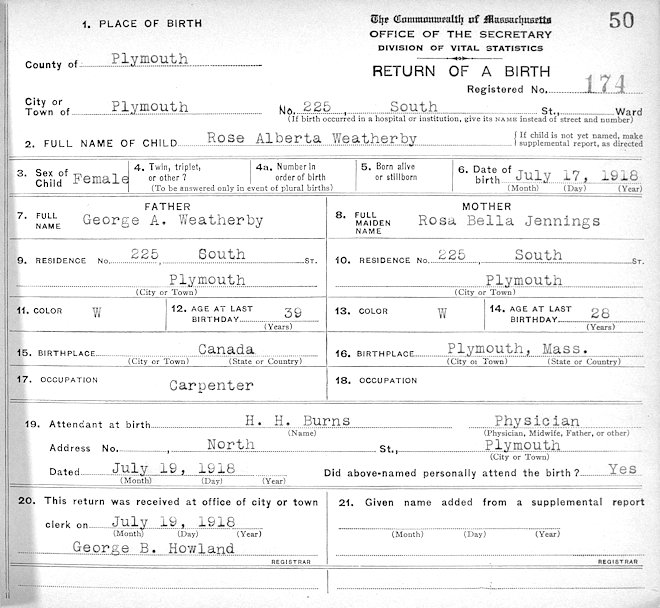 1. PLACE OF BIRTH
The Commonwealth of Massachusetts
50
OFFICE OF THE SECRETARY
DIVISION OF VITAL STATISTICS
RETURN OF A BIRTH
County of Plymouth
Registered No. 174
City or
Town of Plymouth No. 225, South St., Ward
(If birth occurred in a hospital or institution, give its NAME instead of street and number)
2. FULL NAME OF CHILD Rose Alberta Weatherby { If child is not yet named, make
supplemental report, as directed
3. Sex of
Child Female
4. Twin, triplet,
or other ?
4a. Number in
order of birth
(To be answered only in event of plural births)
5. Born alive
or stillborn
6. Date of
birth July 17, 1918
(Month) (Day) (Year)
FATHER
7. FULL
NAME George A. Weatherby
MOTHER
8. FULL
MAIDEN
NAME Rosa Bella Jennings
9. RESIDENCE No. 225 South ST.
Plymouth
(City or Town)
10. RESIDENCE No. 225, South ST.
Plymouth
(City or Town)
11. COLOR W
12. AGE AT LAST
BIRTHDAY 39
(Years)
13. COLOR W
14. AGE AT LAST
BIRTHDAY 28
(Years)
15. BIRTHPLACE Canada
(City or Town) (State or Country)
16. BIRTHPLACE Plymouth, Mass.
(City or Town) (State or Country)
17. OCCUPATION
Carpenter
18. OCCUPATION
19. Attendant at birth H. H. Burns Physician
(Name) (Physician, Midwife, Father, or other)
Address No. , North St., Plymouth
(City or Town)
Dated July 19, 1918 Did above-named personally attend the birth? Yes
(Month) (Day) (Year)
20. This return was received at office of city or town
clerk on July 19, 1918
(Month) (Day) (Year)
George B. Howland
REGISTRAR
21. Given name added from a supplemental report
(Month) (Day) (Year)
REGISTRAR